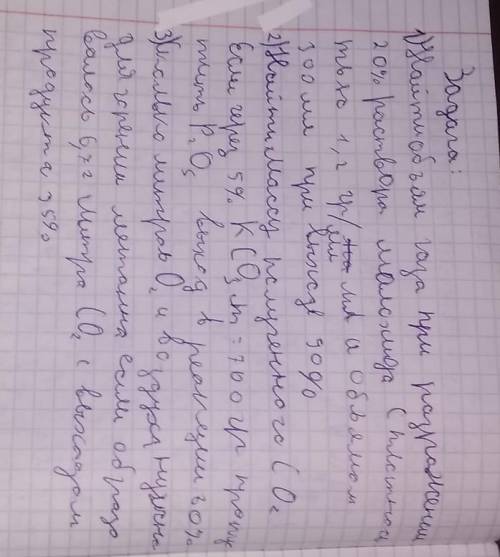 Задача:
1) Найти объём газа при разложении
20% раствора (плотность
1,2 гр/мл и объёмом
300 мл при выходе 90%
2) Найти массу полученного CO2
Если через 5% K CO3 m=700 гр пропус
тить P2O5 выход в реакции 80%
3) Сколько литров O2 и воздуха нужно
для горения метана если образо
валось 6,72 литра CO2 с выходом
продукта 35%